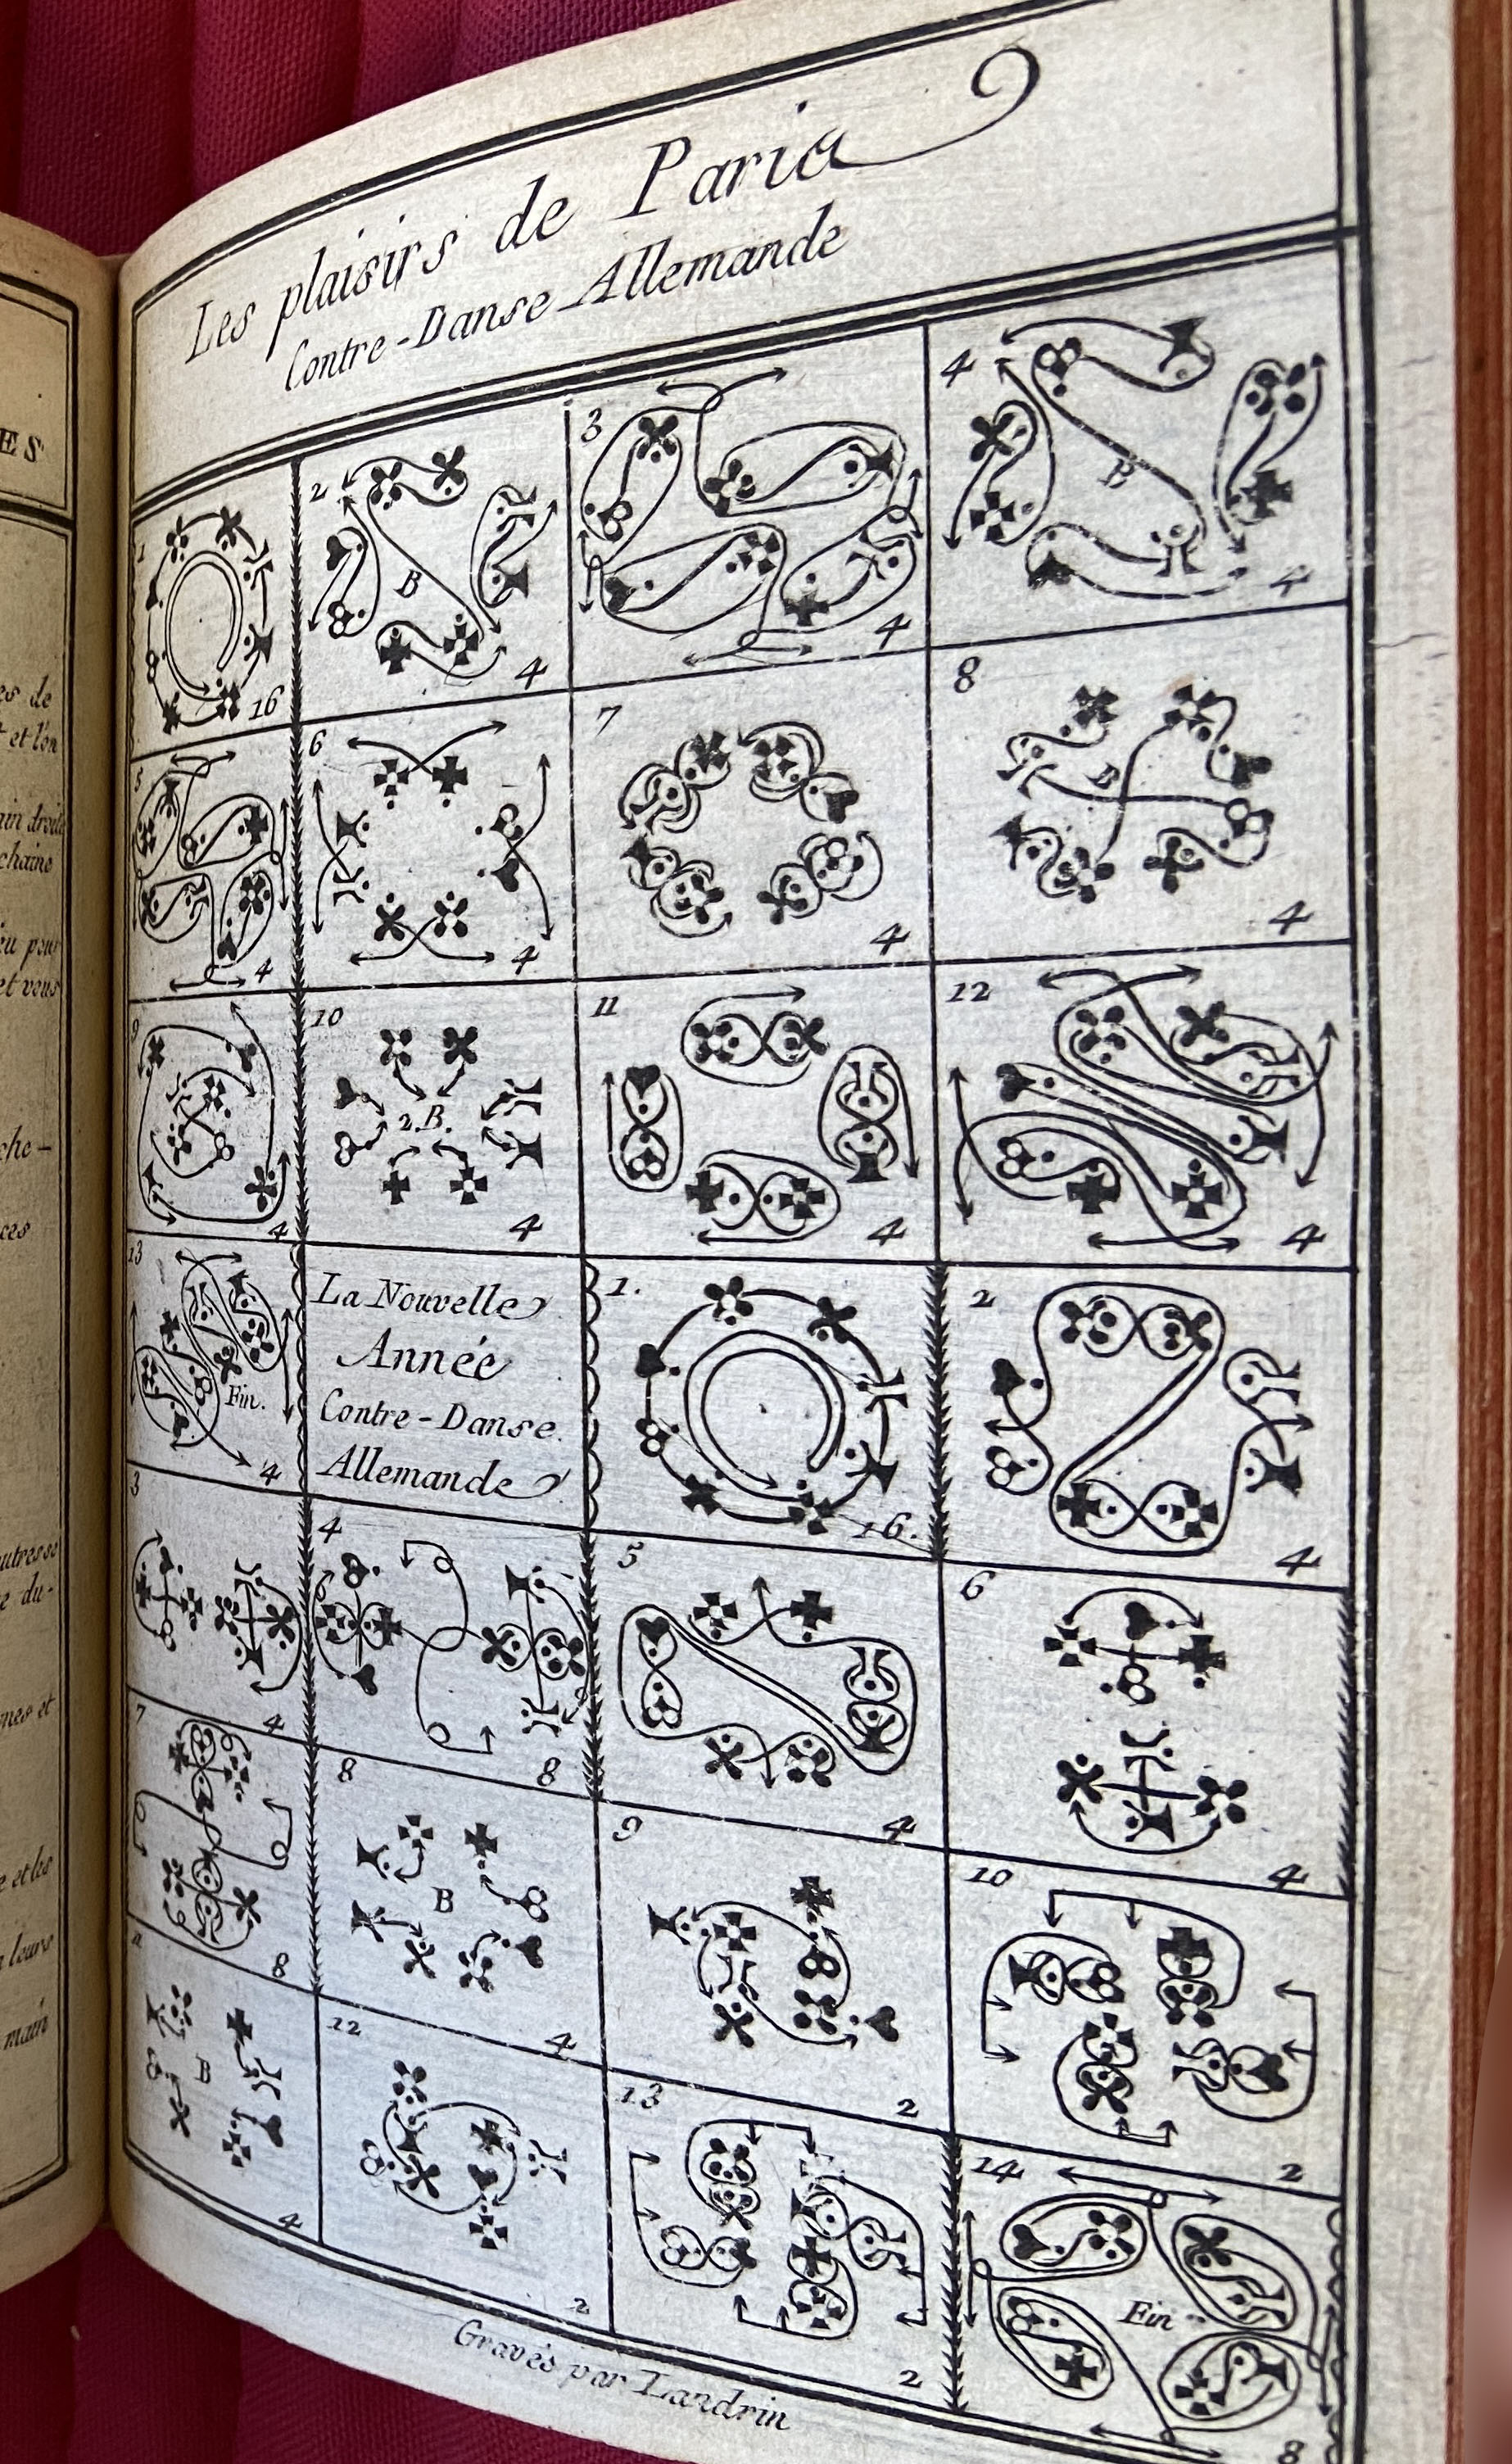 Les plaisirs de Paris
Contre-Danse Allemande
ES
es de
et l'on
ain droite
chaine
eu pour
et vous
che-
ces
autres se
e du-
nes et
e et les
leurs
main
1
16
2
B
4
3
4
4
B
4
5
4
6
4
7
4
8
B
4
9
4
10
2.B.
4
11
4
12
4
13
Fin.
4
La Nouvelle
Année
Contre-Danse
Allemande
1.
16.
2
4
3
4
4
8
5
4
6
4
7
8
8
B
4
9
2
10
2
11
B
4
12
2
13
2
14
Fin
8
Gravés par Landrin